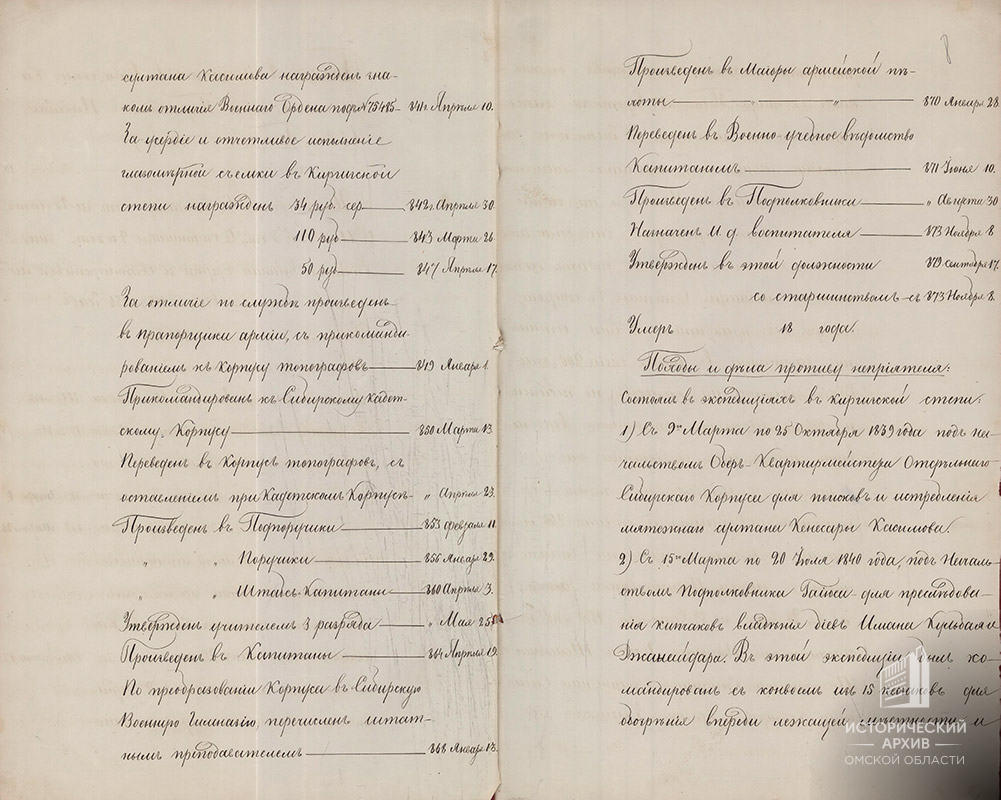 султана Касимова награжденъ зна-
комъ отличія Военнаго Ордена подъ №75485 - 841 г Апрѣля 10.
За усердіе и отчетливое исполненіе
глазомѣрной съемки въ Киргизской
степи награжденъ 34 руб. сер. — 842 г. Апрѣля 30.
110 руб — 843 Марта 26.
50 руб — 847 Апрѣля 17.
За отличіе по службѣ произведенъ
въ прапорщики арміи, съ прикоманди-
рованіемъ къ корпусу топографовъ — 849 Января 1.
Прикомандированъ къ Сибирскому кадет-
скому Корпусу — 850 Марта 13.
Переведенъ въ Корпусъ топографовъ, съ
оставленіемъ при Кадетскомъ Корпусѣ - „ Апрѣля 23.
Произведенъ въ Подпоручики — 853 Февраля 11.
„ „ Поручики — 856 Января 29.
„ „ Штабсъ-Капитаны — 860 Апрѣля 3.
Утвержденъ учителемъ 3 разряда — „ Мая 25
Произведенъ въ Капитаны — 864 Апрѣля 19.
По преобразованіи Корпуса въ Сибирскую
Военную Гимназію, перечисленъ штат-
нымъ преподавателемъ — 868 Января 13.
8
Произведенъ въ Маіоры армейской пѣ-
хоты — „ — „ — 870 Января 28
Переведенъ въ Военно-учебное вѣдомство
Капитаномъ — 871 Іюня 10.
Произведенъ въ Подполковники — „ Августа 30
Назначенъ И. д. воспитателя — 873 Ноября 8
Утвержденъ въ этой должности 879 Сентября 17.
со старшинствомъ съ 873 Ноября 8.
Умеръ 18 года.
Походы и дѣла противу непріятеля:
Состоялъ въ экспедиціяхъ въ киргизской степи:
1) Съ 9го Марта по 25 Октября 1839 года подъ на-
чальствомъ Оберъ-Квартирмейстера Отдѣльнаго
Сибирскаго Корпуса для поисковъ и истребленія
мятежнаго султана Кенесары Касимова.
2) Съ 15го Марта по 20 Іюля 1840 года, подъ Началь-
ствомъ Подполковника для преслѣдова-
нія Имана Кульдая и
Джанайдара. Въ этой экспедиціи былъ ко-
мандированъ съ конвоемъ изъ 15 казаковъ для
обозрѣнія впереди лежащей мѣстности и
ИСТОРИЧЕСКИЙ
АРХИВ
ОМСКОЙ ОБЛАСТИ